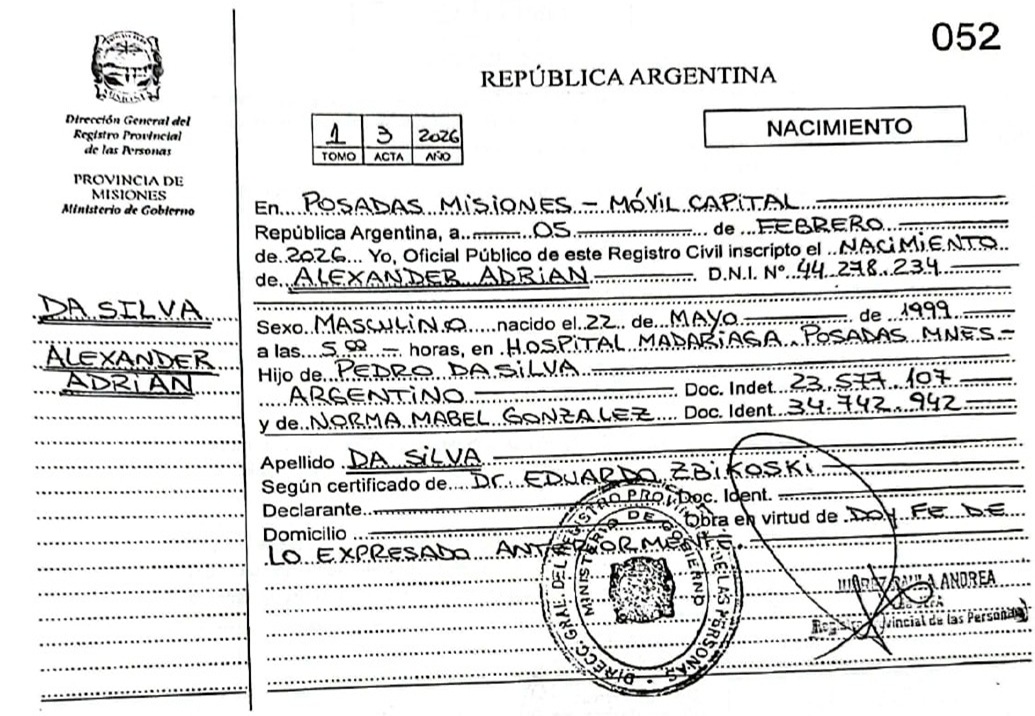 052
REPÚBLICA ARGENTINA
Dirección General del
Registro Provincial
de las Personas
PROVINCIA DE
MISIONES
Ministerio de Gobierno
1 3 2026
TOMO ACTA AÑO
NACIMIENTO
DA SILVA
ALEXANDER
ADRIAN
En POSADAS MISIONES - MÓVIL CAPITAL
República Argentina, a 05 de FEBRERO
de 2026 Yo, Oficial Público de este Registro Civil inscripto el NACIMIENTO
de ALEXANDER ADRIAN D.N.I. Nº 44.278.234
Sexo MASCULINO nacido el 22 de MAYO de 1999
a las 5 00 horas, en HOSPITAL MADARIAGA POSADAS MNES-
Hijo de PEDRO DA SILVA
ARGENTINO Doc. Indet 23.577.107
y de NORMA MABEL GONZALEZ Doc. Ident. 34.742.942
Apellido DA SILVA
Según certificado de Dr. EDUARDO ZBIKOSKI
Declarante Doc. Ident.
Domicilio Obra en virtud de DOY FE DE
LO EXPRESADO ANTERIORMENTE.
DIRECC. GRAL. DEL REGISTRO PROVINCIAL DE LAS PERSONAS
MINISTERIO DE GOBIERNO
PAULA ANDREA
Registro Provincial de las Personas